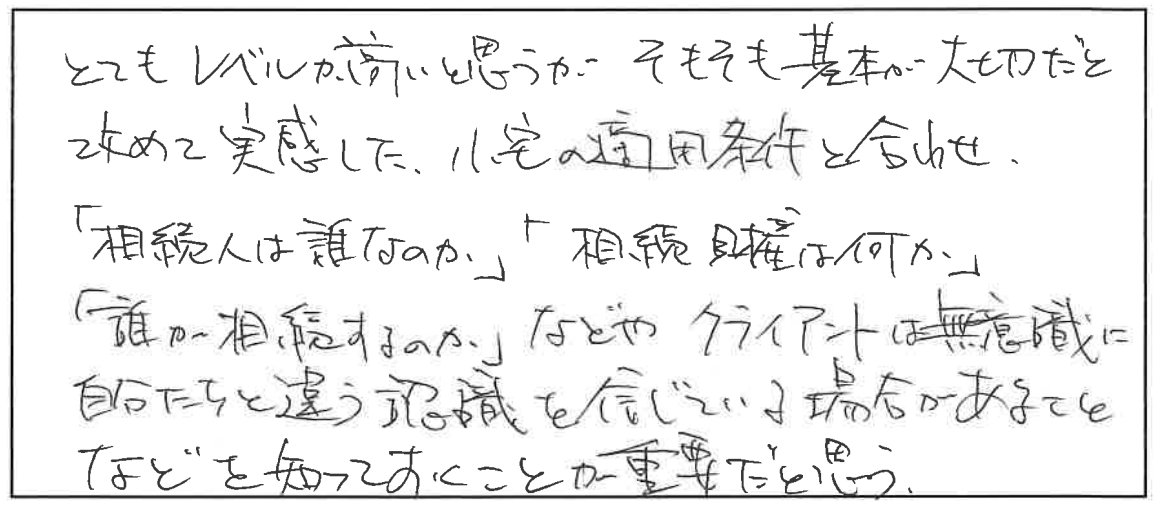 とてもレベルが高いと思うが そもそも基本が大切だと
改めて実感した、小宅の適用条件と合わせ、
「相続人は誰なのか」「相続財産は何か」
「誰が相続するのか」などや クライアントは無意識に
自分たちと違う認識を信じている場合があることを
などを知っておくことが重要だと思う。